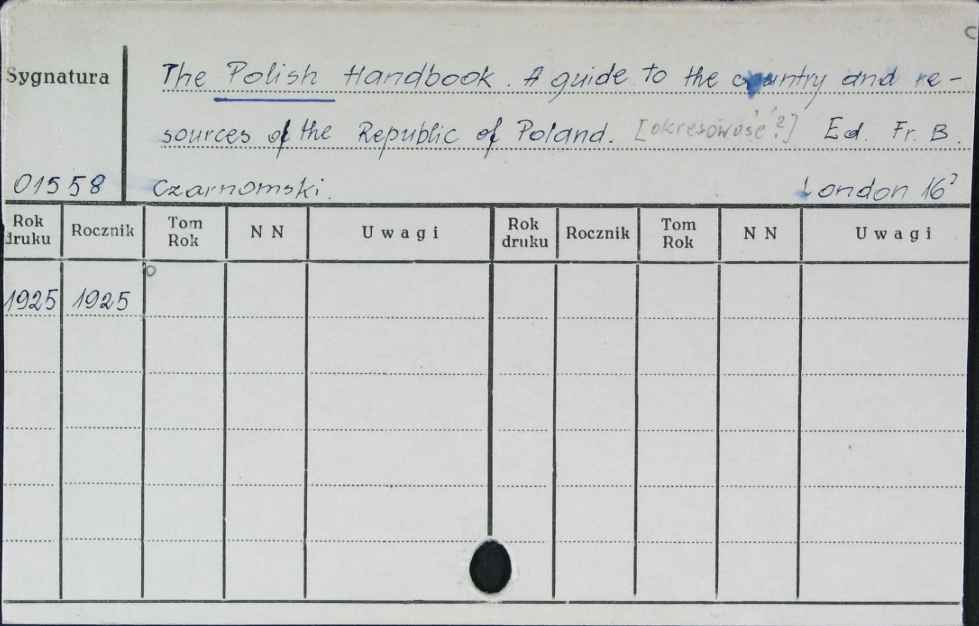 Sygnatura The Polish Handbook. A guide to the country and re-
sources of the Republic of Poland. [okresowość?] Ed. Fr. B.
01558 Czarnomski. London 16°
Rok druku Rocznik Tom Rok N N Uwagi Rok druku Rocznik Tom Rok N N Uwagi
1925 1925